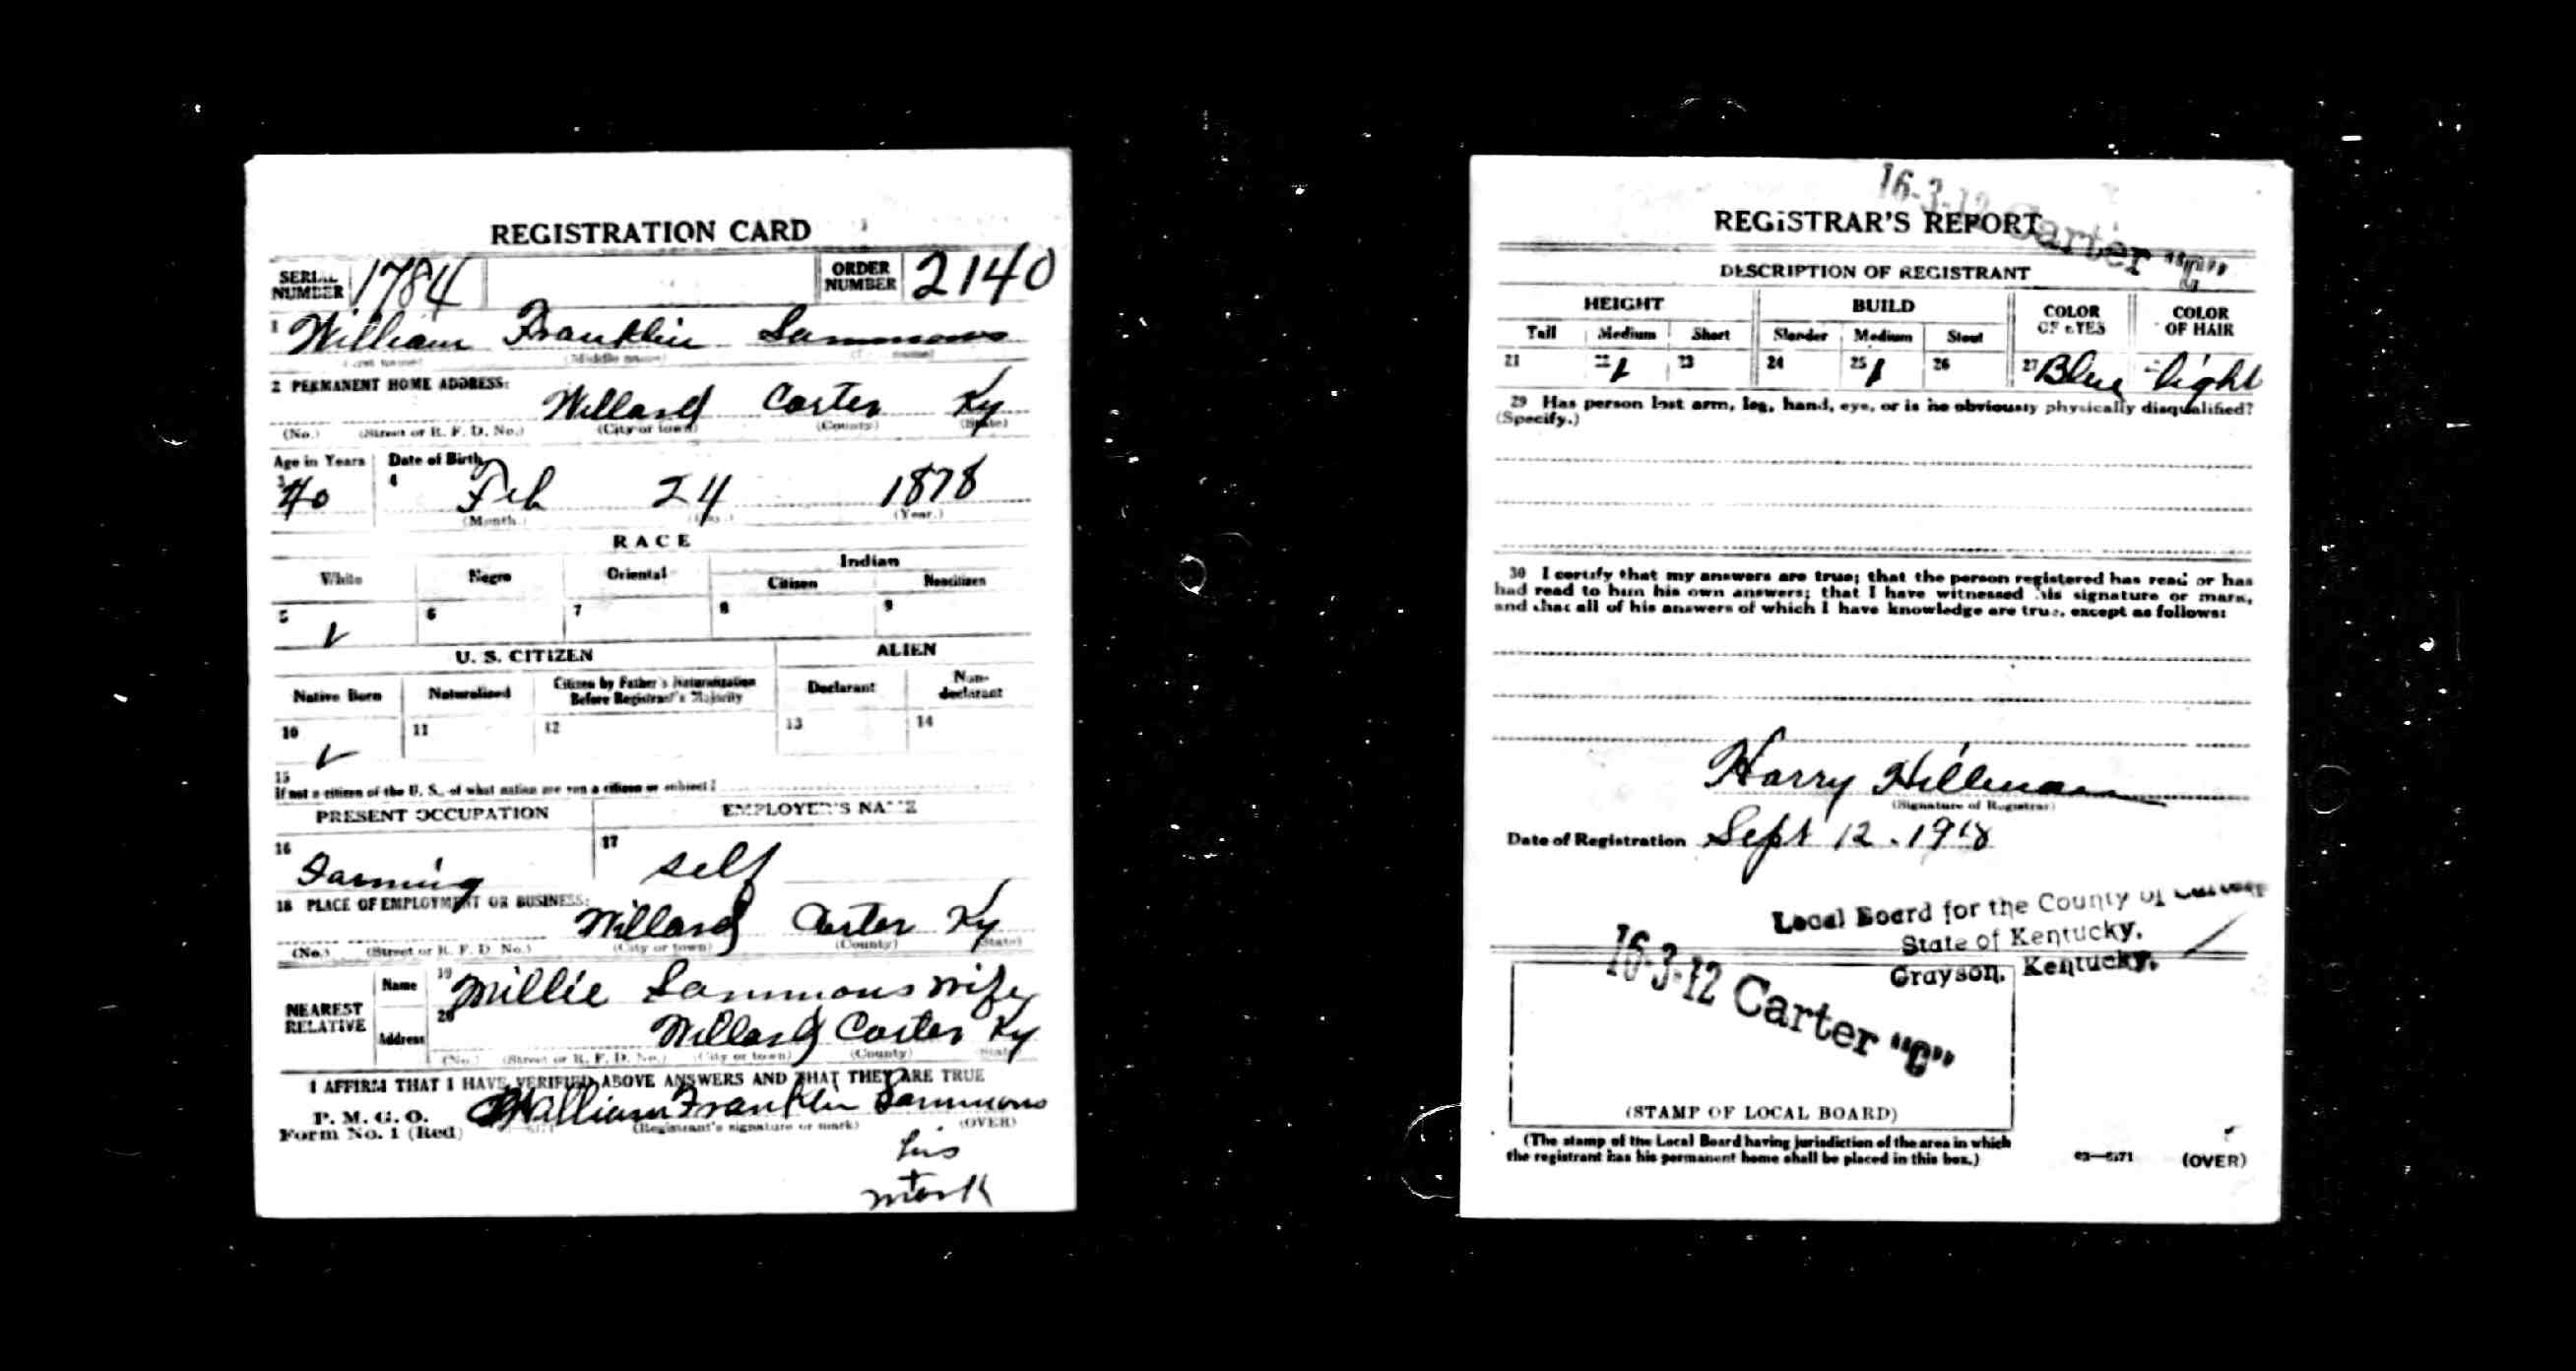 REGISTRATION CARD
SERIAL NUMBER 1784 ORDER NUMBER 2140
1 William Franklin Sammons
(Middle name) name)
2 PERMANENT HOME ADDRESS:
Willard Carter Ky
(No.) (Street or R. F. D. No.) (City or town) (County) (State)
Age in Years Date of Birth
3 40 4 Feb 24 1878
(Month.) (Day.) (Year.)
RACE
White Negro Oriental Indian
Citizen Noncitizen
5 ✓ 6 7 8 9
U. S. CITIZEN ALIEN
Native Born Naturalized Citizen by Father's Naturalization Before Registrant's Majority Declarant Non-declarant
10 ✓ 11 12 13 14
15
If not a citizen of the U. S., of what nation are you a citizen or subject?
PRESENT OCCUPATION EMPLOYER'S NAME
16 Farming 17 self
18 PLACE OF EMPLOYMENT OR BUSINESS:
Willard Carter Ky
(No.) (Street or R. F. D. No.) (City or town) (County) (State)
NEAREST RELATIVE Name 19 Millie Sammons wife
Address 20 Willard Carter Ky
(No.) (Street or R. F. D. No.) (City or town) (County) (State)
I AFFIRM THAT I HAVE VERIFIED ABOVE ANSWERS AND THAT THEY ARE TRUE
P. M. G. O.
Form No. 1 (Red) William Franklin Sammons
(Registrant's signature or mark) (OVER)
his
+
mark
16-3-12 Carter "C"
REGISTRAR'S REPORT
DESCRIPTION OF REGISTRANT
HEIGHT BUILD COLOR OF EYES COLOR OF HAIR
Tall Medium Short Slender Medium Stout
21 22 1 23 24 25 1 26 27 Blue light
29 Has person lost arm, leg, hand, eye, or is he obviously physically disqualified?
(Specify.)
30 I certify that my answers are true; that the person registered has read or has
had read to him his own answers; that I have witnessed his signature or mark,
and that all of his answers of which I have knowledge are true, except as follows:
Harry Hillman
(Signature of Registrar)
Date of Registration Sept 12 . 1918
Local Board for the County of Carter
State of Kentucky,
Grayson, Kentucky.
16-3-12 Carter "C"
(STAMP OF LOCAL BOARD)
(The stamp of the Local Board having jurisdiction of the area in which
the registrant has his permanent home shall be placed in this box.)
03—6171 (OVER)